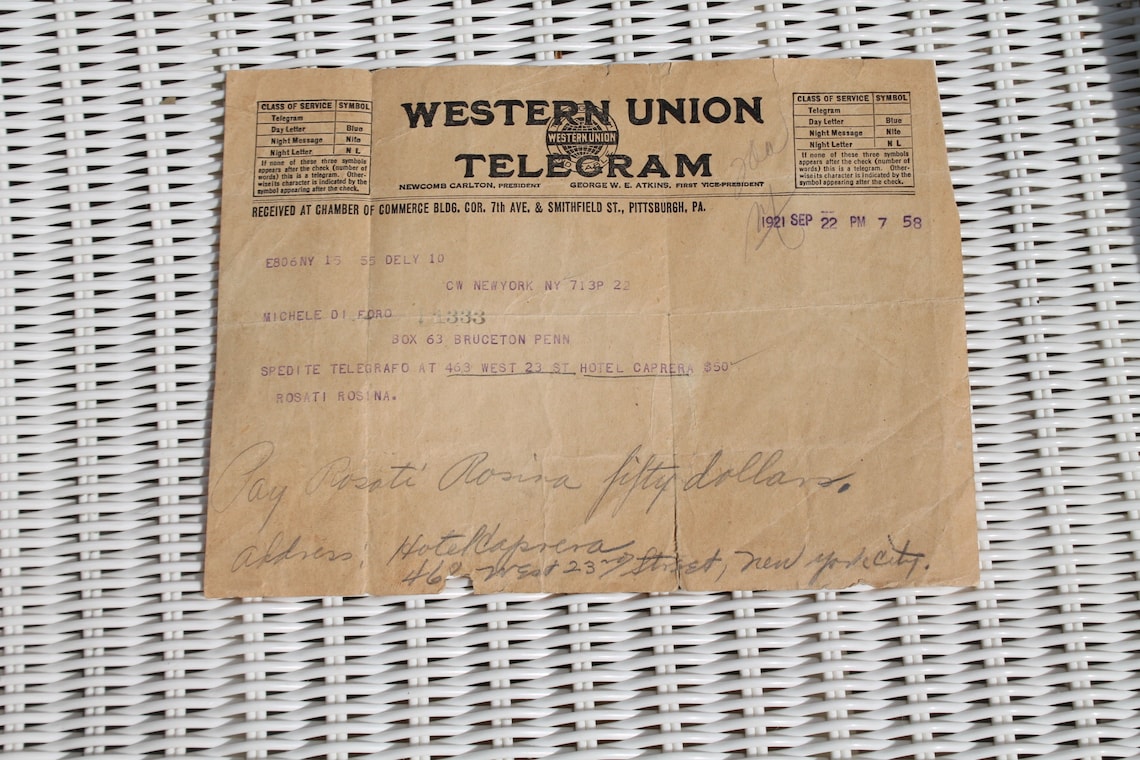 CLASS OF SERVICE SYMBOL
Telegram
Day Letter Blue
Night Message Nite
Night Letter N L
If none of these three symbols
appears after the check (number of
words) this is a telegram. Other-
wise its character is indicated by the
symbol appearing after the check.
WESTERN UNION
WESTERN UNION
TELEGRAM
NEWCOMB CARLTON, PRESIDENT GEORGE W. E. ATKINS, FIRST VICE-PRESIDENT
CLASS OF SERVICE SYMBOL
Telegram
Day Letter Blue
Night Message Nite
Night Letter N L
If none of these three symbols
appears after the check (number of
words) this is a telegram. Other-
wise its character is indicated by the
symbol appearing after the check.
RECEIVED AT CHAMBER OF COMMERCE BLDG. COR. 7th AVE. & SMITHFIELD ST., PITTSBURGH, PA.
1921 SEP 22 PM 7 58
E806NY 15 55 DELY 10
CW NEWYORK NY 713P 22
MICHELE DI FORO 1333
BOX 63 BRUCETON PENN
SPEDITE TELEGRAFO AT 463 WEST 23 ST HOTEL CAPRERA $50
ROSATI ROSINA.
Pay Rosati Rosina fifty dollars.
address, Hotel Caprera
463 West 23rd Street, New York City.